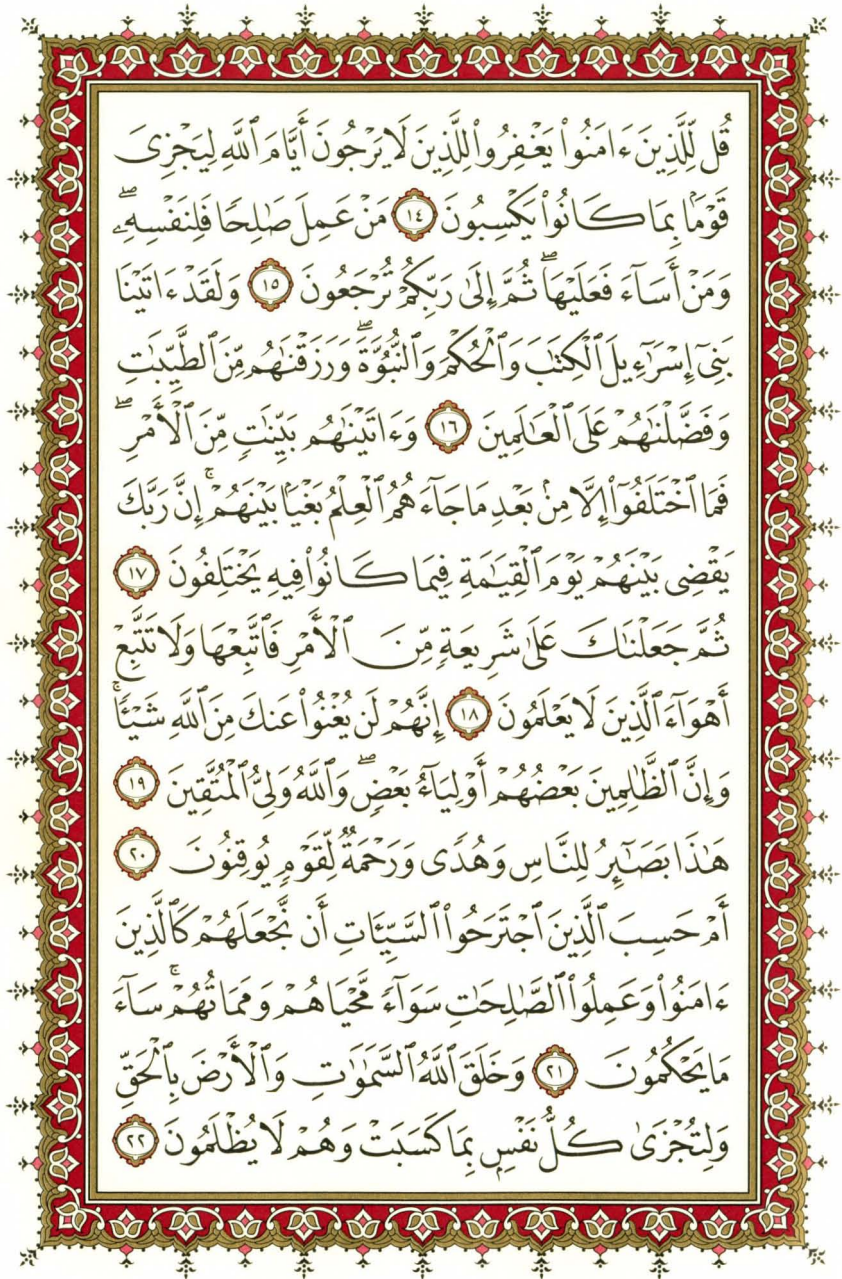 قُل لِّلَّذِينَ ءَامَنُوا۟ يَغْفِرُوا۟ لِلَّذِينَ لَا يَرْجُونَ أَيَّامَ ٱللَّهِ لِيَجْزِىَ
قَوْمًۢا بِمَا كَانُوا۟ يَكْسِبُونَ ١٤ مَنْ عَمِلَ صَٰلِحًا فَلِنَفْسِهِۦ ۖ
وَمَنْ أَسَآءَ فَعَلَيْهَا ۖ ثُمَّ إِلَىٰ رَبِّكُمْ تُرْجَعُونَ ١٥ وَلَقَدْ ءَاتَيْنَا
بَنِىٓ إِسْرَٰٓءِيلَ ٱلْكِتَٰبَ وَٱلْحُكْمَ وَٱلنُّبُوَّةَ ۖ وَرَزَقْنَٰهُم مِّنَ ٱلطَّيِّبَٰتِ
وَفَضَّلْنَٰهُمْ عَلَى ٱلْعَٰلَمِينَ ١٦ وَءَاتَيْنَٰهُم بَيِّنَٰتٍ مِّنَ ٱلْأَمْرِ ۖ
فَمَا ٱخْتَلَفُوٓا۟ إِلَّا مِنۢ بَعْدِ مَا جَآءَهُمُ ٱلْعِلْمُ بَغْيًۢا بَيْنَهُمْ ۚ إِنَّ رَبَّكَ
يَقْضِى بَيْنَهُمْ يَوْمَ ٱلْقِيَٰمَةِ فِيمَا كَانُوا۟ فِيهِ يَخْتَلِفُونَ ١٧
ثُمَّ جَعَلْنَٰكَ عَلَىٰ شَرِيعَةٍ مِّنَ ٱلْأَمْرِ فَٱتَّبِعْهَا وَلَا تَتَّبِعْ
أَهْوَآءَ ٱلَّذِينَ لَا يَعْلَمُونَ ١٨ إِنَّهُمْ لَن يُغْنُوا۟ عَنكَ مِنَ ٱللَّهِ شَيْـًٔا ۚ
وَإِنَّ ٱلظَّٰلِمِينَ بَعْضُهُمْ أَوْلِيَآءُ بَعْضٍ ۖ وَٱللَّهُ وَلِىُّ ٱلْمُتَّقِينَ ١٩
هَٰذَا بَصَٰٓئِرُ لِلنَّاسِ وَهُدًى وَرَحْمَةٌ لِّقَوْمٍ يُوقِنُونَ ٢٠
أَمْ حَسِبَ ٱلَّذِينَ ٱجْتَرَحُوا۟ ٱلسَّيِّـَٔاتِ أَن نَّجْعَلَهُمْ كَٱلَّذِينَ
ءَامَنُوا۟ وَعَمِلُوا۟ ٱلصَّٰلِحَٰتِ سَوَآءً مَّحْيَاهُمْ وَمَمَاتُهُمْ ۚ سَآءَ
مَا يَحْكُمُونَ ٢١ وَخَلَقَ ٱللَّهُ ٱلسَّمَٰوَٰتِ وَٱلْأَرْضَ بِٱلْحَقِّ
وَلِتُجْزَىٰ كُلُّ نَفْسٍۭ بِمَا كَسَبَتْ وَهُمْ لَا يُظْلَمُونَ ٢٢